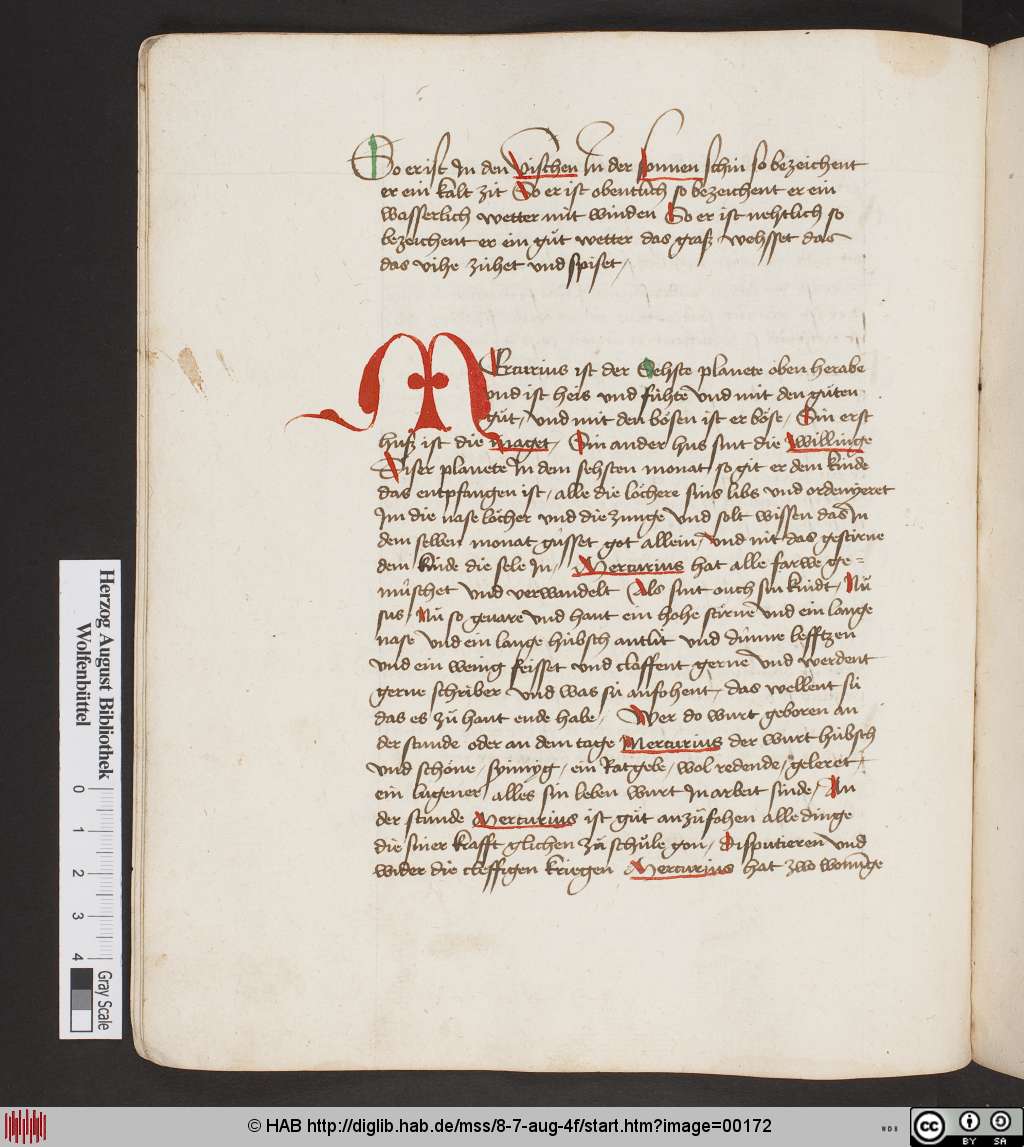 So er ist In den vischen In der sonnen schin so bezeichent
er ein kalt zit So er ist obentlich so bezeichent er ein
wasserlich wetter mit winden So er ist nehtlich so
bezeichent er ein gůt wetter das graß wehsset das
das vihe zühet vnd spiset /
MErcurius ist der Sehste planete oben herabe
vnd ist heis vnd fühte vnd mit den gůten
gůt / vnd mit den bösen ist er böse / Sin erst
huß ist die maget / Sin ander hus sint die zwillinge
Diser planete In dem sehsten monat so git er dem kinde
das entpfangen ist / alle die löchere sins libs vnd ordenyeret
Im die nase löcher vnd die zunge vnd solt wissen das In
dem selben monat güsset got allein / vnd nit das gestirne
dem kinde die sele In / Mercurius hat alle farwe ge=
müschet vnd verwandelt Als sint ouch sin kindt / Nů
sus / Nů so genare vnd hant ein hohe stirne vnd ein lange
nase vnd ein lange hübsch antlit vnd dünne lefftzen
vnd ein wenig feisset vnd claffent gerne vnd werdent
gerne schriber vnd was sü anfohent / das wellent sü
das es zů hant ende habe / Wer do wurt geboren an
der stunde oder an dem tage Mercurius der wurt hübsch
vnd schöne / synnyg / ein Ratgebe / wol redende / geleret /
ein lugener / alles sin leben wurt In arbeit sinde / An
der stunde Mercurius ist gůt anzůfohen alle dinge
die siner krafft glichen zů schůle gon / Disputieren vnd
wider die cleffigen kriegen Mercurius hat zwo wonunge
Herzog August Bibliothek
Wolfenbüttel
0 1 2 3 4
Gray Scale
© HAB http://diglib.hab.de/mss/8-7-aug-4f/start.htm?image=00172
WDB
cc BY SA